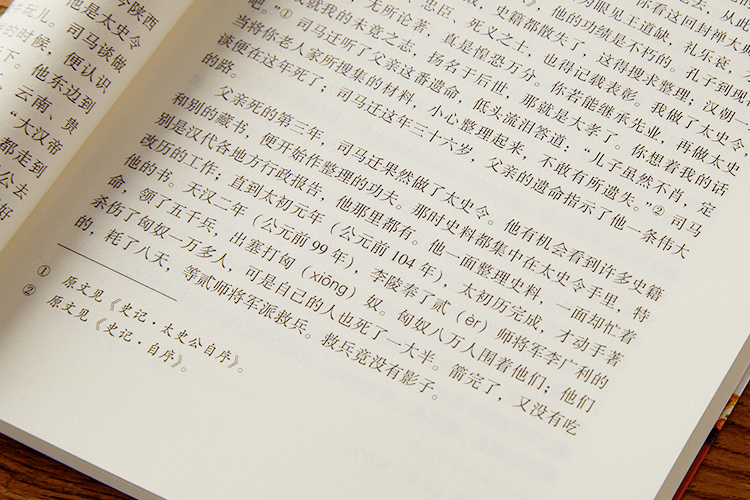 今陕西
他是太史令
玩儿。司马谈做
的时候，便认识
下。他东边到
，云南、贵
“大汉帝
都走到
公去
好
你看这回封禅大
为眼见王道缺，礼乐衰，
他的功绩是不朽的。孔子到现
史籍都散失了，这得搜求整理；汉朝一
忠臣、死义之士，也得记载表彰。我做了太史令
无所论著，真是惶恐万分。你若能继承先业，再做太史
就我的未竟之志，扬名于后世，那就是大孝了。你想着我的话
吧。”①司马迁听了父亲这番遗命，低头流泪答道：“儿子虽然不肖，定
当将你老人家所搜集的材料，小心整理起来，不敢有所遗失。”②司马
谈便在这年死了；司马迁这年三十六岁，父亲的遗命指示了他一条伟大
的路。
父亲死的第三年，司马迁果然做了太史令。他有机会看到许多史籍
和别的藏书，便开始作整理的功夫。那时史料都集中在太史令手里，特
别是汉代各地方行政报告，他那里都有。他一面整理史料，一面却忙着
改历的工作；直到太初元年（公元前104年），太初历完成，才动手著
他的书。天汉二年（公元前99年），李陵奉了贰（èr）师将军李广利的
命，领了五千兵，出塞打匈（xiōng）奴。匈奴八万人围着他们；他们
杀伤了匈奴一万多人，可是自己的人也死了一大半。箭完了，又没有吃
的，耗了八天，等贰师将军派救兵。救兵竟没有影子。
① 原文见《史记·太史公自序》。
② 原文见《史记·自序》。